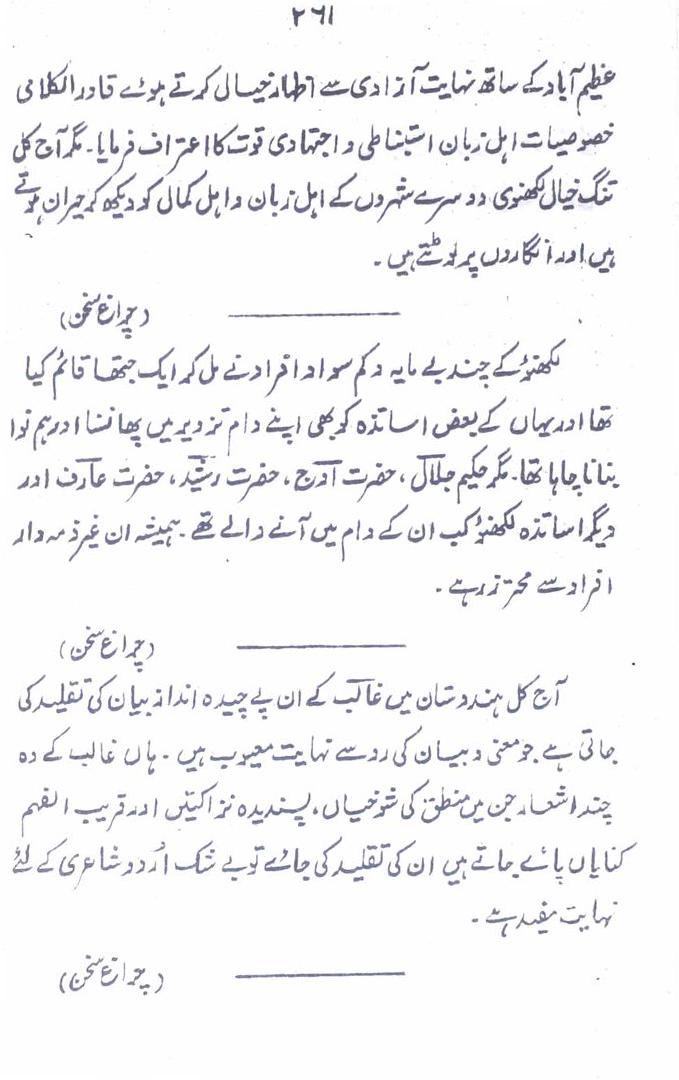 ۲۶۱
عظیم آباد کے ساتھ نہایت آزادی سے اظہار خیال کرتے ہوئے قادر الکلامی
خصوصیات اہل زبان استنباطی و اجتہادی قوت کا اعتراف فرمایا۔ مگر آج کل
تنگ خیال لکھنوی دوسرے شہروں کے اہل زبان و اہل کمال کو دیکھ کر حیران ہوتے
ہیں اور انگاروں پر لوٹتے ہیں۔
(چراغ سخن)
لکھنؤ کے چند بے مایہ و کم سواد افراد نے مل کر ایک جتھا قائم کیا
تھا اور یہاں کے بعض اساتذہ کو بھی اپنے دام تزویر میں پھانسنا اور ہم نوا
بنانا چاہا تھا۔ مگر حکیم جلال، حضرت اوج، حضرت رشید، حضرت عارف اور
دیگر اساتذہ لکھنؤ کب ان کے دام میں آنے والے تھے۔ ہمیشہ ان غیر ذمہ دار
افراد سے محترز رہے۔
(چراغ سخن)
آج کل ہندوستان میں غالب کے ان پے چیدہ انداز بیان کی تقلید کی
جاتی ہے جو معنی و بیان کی رو سے نہایت معیوب ہیں۔ ہاں غالب کے وہ
چند اشعار جن میں منطق کی شوخیاں، پسندیدہ نزاکتیں اور قریب الفہم
کنایاں پائے جاتے ہیں ان کی تقلید کی جائے تو بے شک اُردو شاعری کے لئے
نہایت مفید ہے۔
(چراغ سخن)